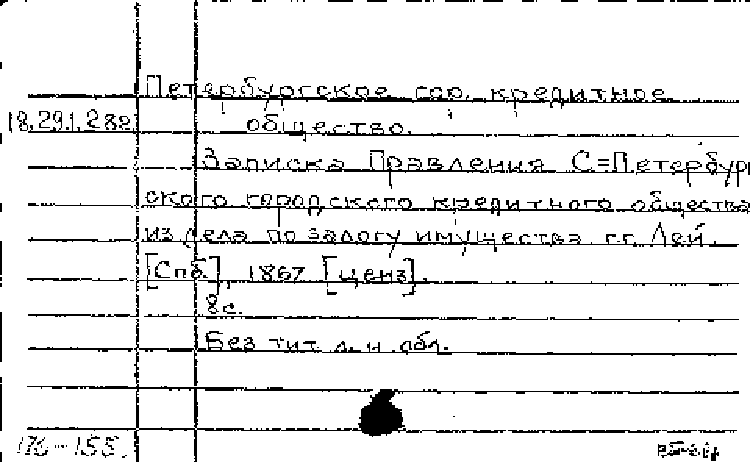 Петербургское гор. кредитное
18.29.1.282 общество.
Записка Правления С=Петербург
ского городского кредитного общества
из дела по залогу имущества г.г. Лей.
[Спб], 1867 [ценз].
8с.
Без тит. л. и обл.
176-155.